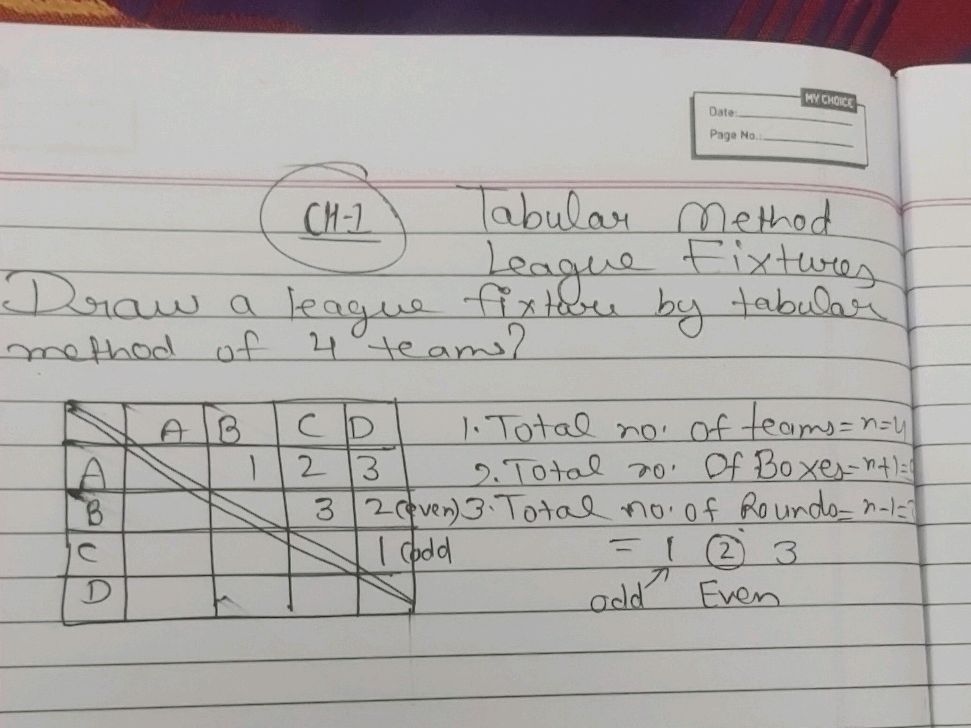 MY CHOICE
Date:
Page No.:
CH-1
Tabular Method
League Fixtures
Draw a league fixture by tabular
method of 4 teams?
A B C D
A 1 2 3
B 3 2 (even)
C 1 (odd
D
1. Total no. of teams = n = 4
2. Total no. Of Boxes = n+1 =
3. Total no. of Rounds = n-1 =
= 1 2 3
odd Even